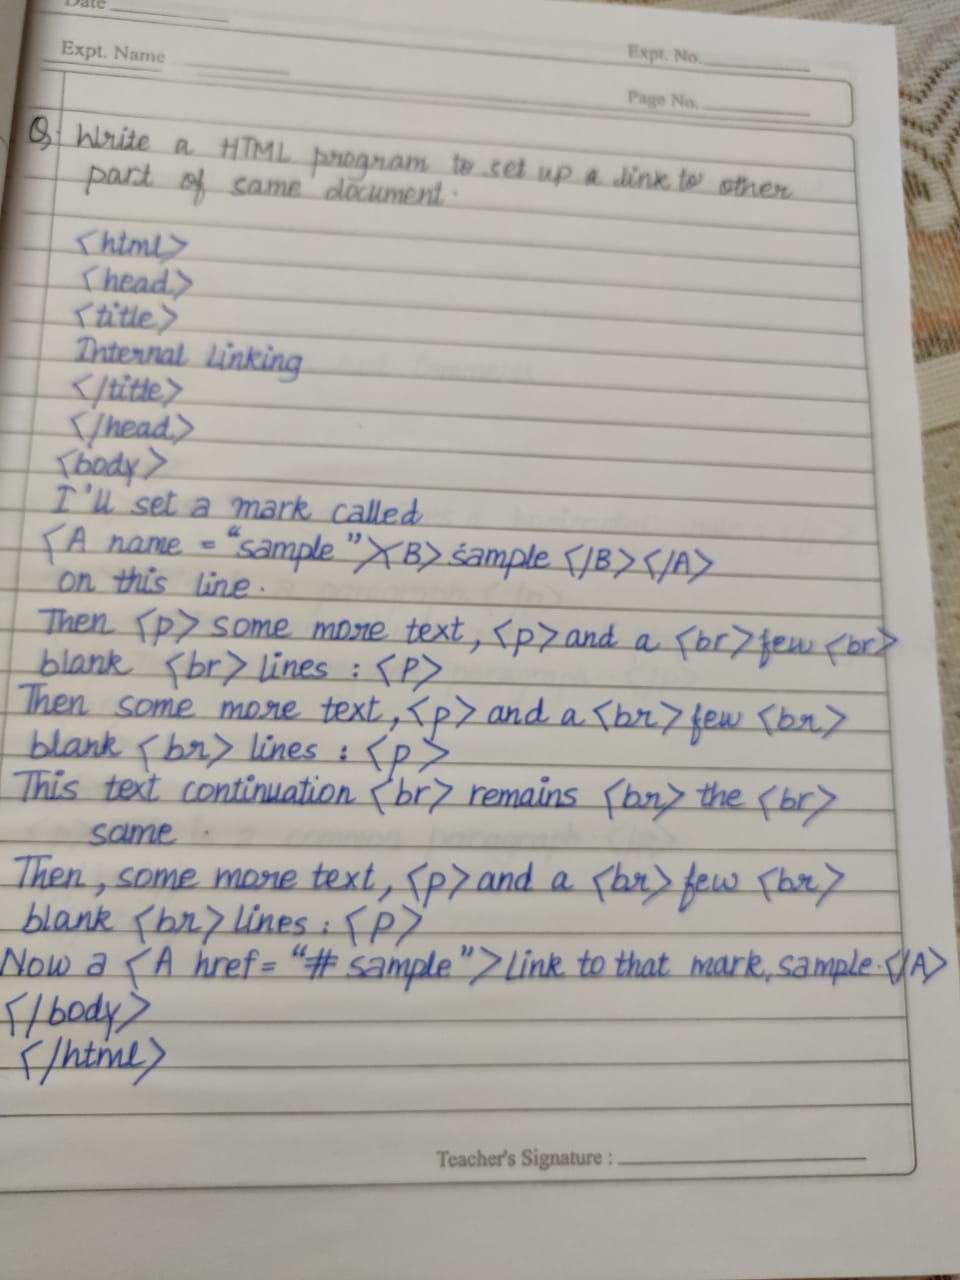 Date
Expt. Name
Expt. No.
Page No.
Q. Write a HTML program to set up a link to other
part of same document.
<html>
<head>
<title>
Internal Linking
</title>
</head>
<body>
I'll set a mark called
<A name = "sample"><B> sample </B></A>
on this line.
Then <p> some more text, <p> and a <br> few <br>
blank <br> lines : <P>
Then some more text, <p> and a <br> few <br>
blank <br> lines : <p>
This text continuation <br> remains <br> the <br>
same.
Then, some more text, <p> and a <br> few <br>
blank <br> lines : <P>
Now a <A href= "# sample"> Link to that mark, sample. </A>
</body>
</html>
Teacher's Signature :